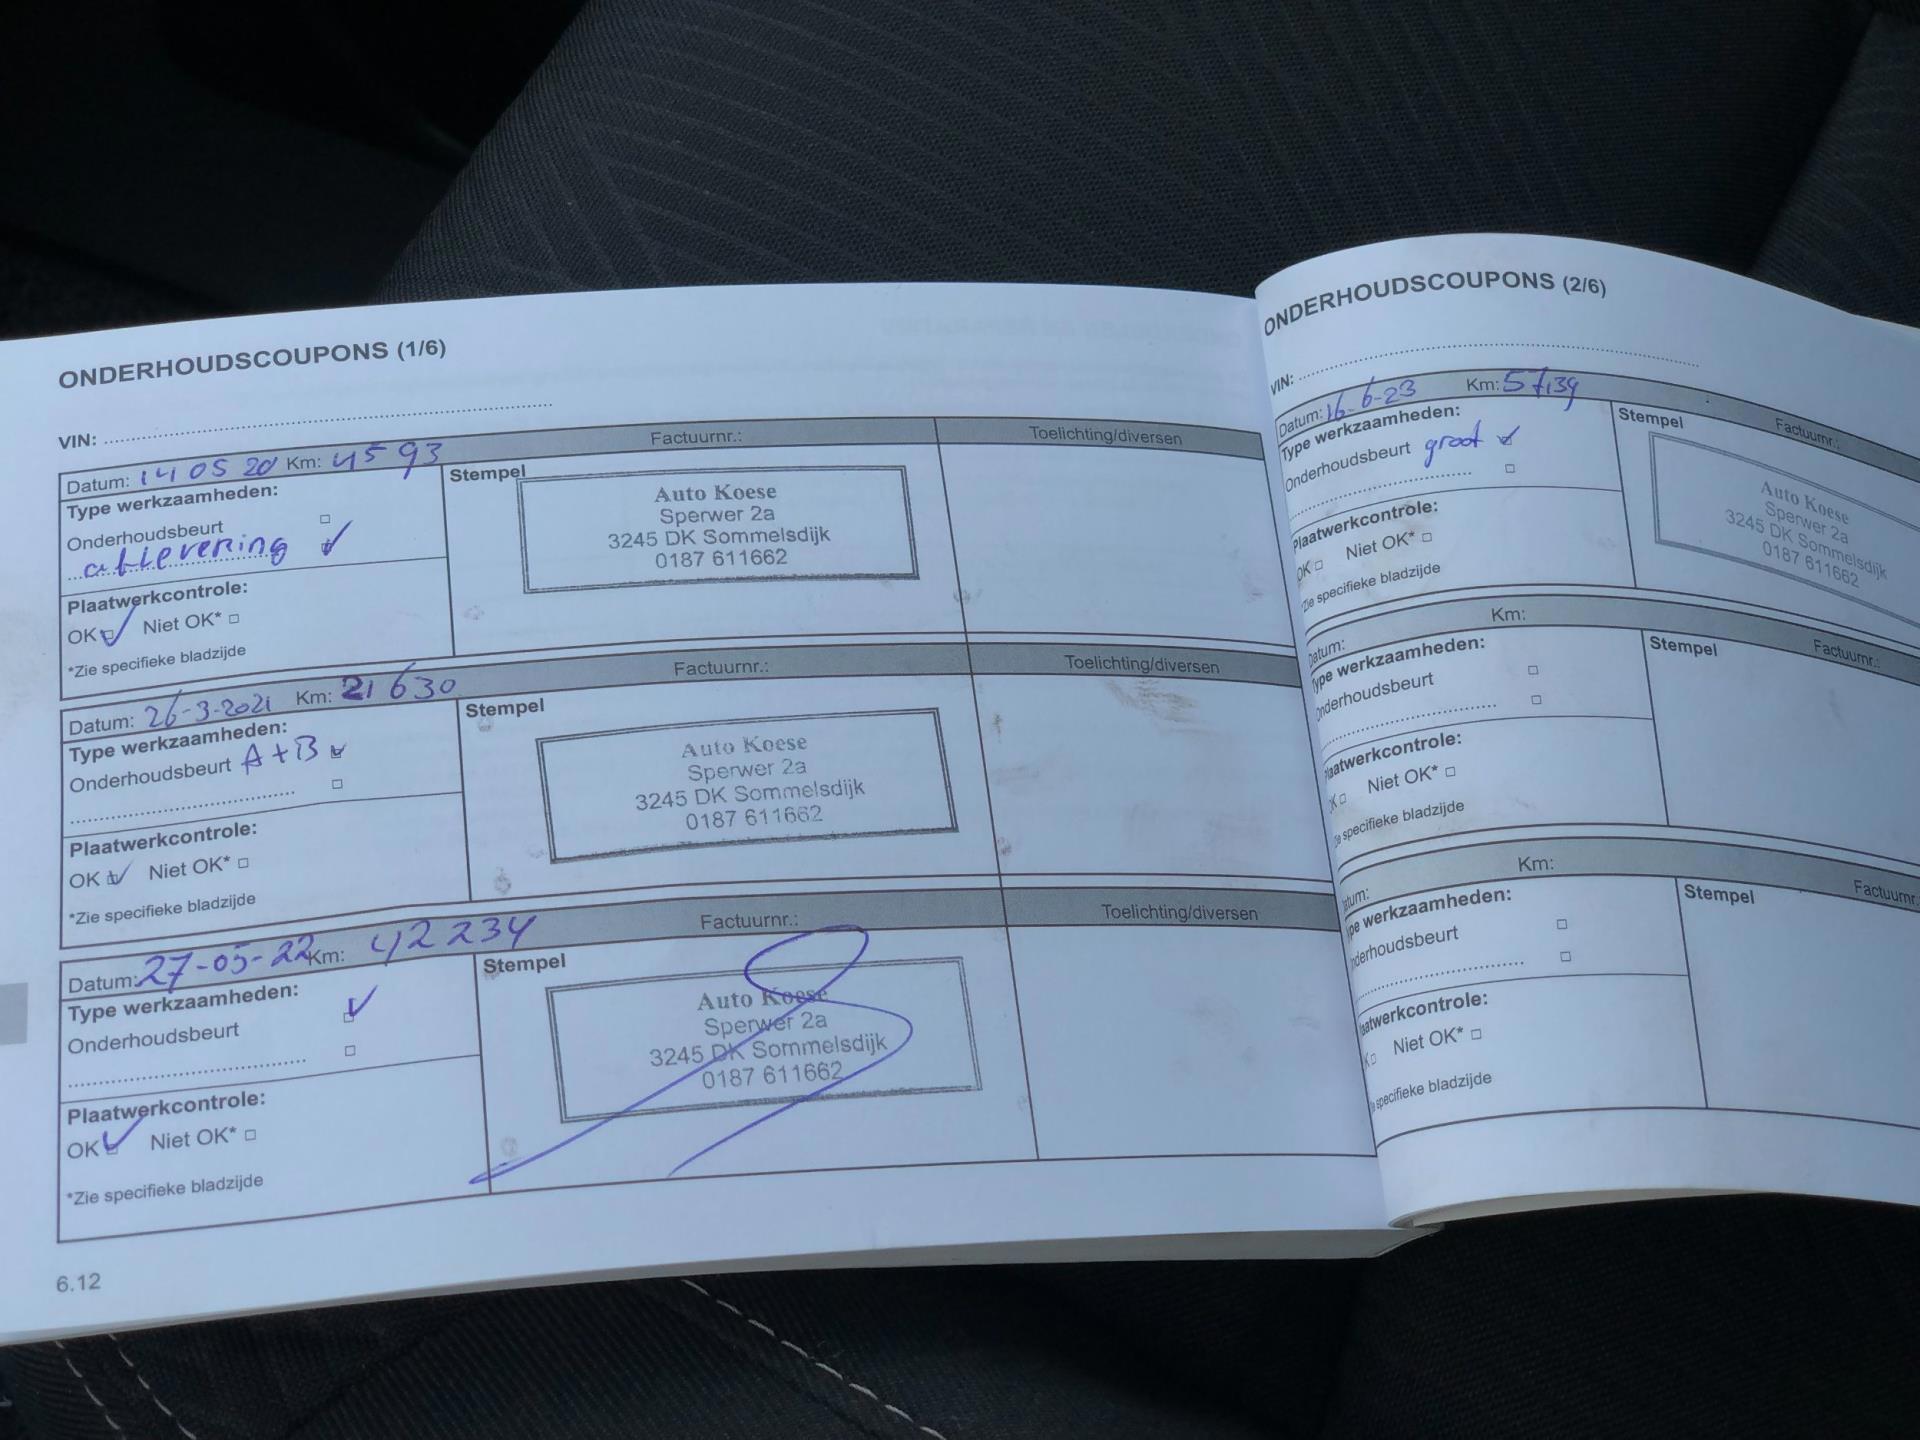 ONDERHOUDSCOUPONS (1/6)
VIN:
Datum: 14 05 20 Km: 4593 Factuurnr.: Toelichting/diversen
Type werkzaamheden:
Onderhoudsbeurt
aflevering
Plaatwerkcontrole:
OK Niet OK*
*Zie specifieke bladzijde
Stempel
Auto Koese
Sperwer 2a
3245 DK Sommelsdijk
0187 611662
Datum: 26-3-2021 Km: 21630 Factuurnr.: Toelichting/diversen
Type werkzaamheden:
Onderhoudsbeurt A+B
Plaatwerkcontrole:
OK Niet OK*
*Zie specifieke bladzijde
Stempel
Auto Koese
Sperwer 2a
3245 DK Sommelsdijk
0187 611662
Datum: 27-05-22 Km: 42234 Factuurnr.: Toelichting/diversen
Type werkzaamheden:
Onderhoudsbeurt
Plaatwerkcontrole:
OK Niet OK*
*Zie specifieke bladzijde
Stempel
Auto Koese
Sperwer 2a
3245 DK Sommelsdijk
0187 611662
6.12
ONDERHOUDSCOUPONS (2/6)
VIN:
Datum: 16-6-23 Km: 57139 Factuurnr.:
Type werkzaamheden:
Onderhoudsbeurt groot
Plaatwerkcontrole:
OK Niet OK*
*Zie specifieke bladzijde
Stempel
Auto Koese
Sperwer 2a
3245 DK Sommelsdijk
0187 611662
Datum: Km: Factuurnr.:
Type werkzaamheden:
Onderhoudsbeurt
Plaatwerkcontrole:
OK Niet OK*
specifieke bladzijde
Stempel
atum: Km: Factuurnr.:
ype werkzaamheden:
nderhoudsbeurt
aatwerkcontrole:
K Niet OK*
specifieke bladzijde
Stempel